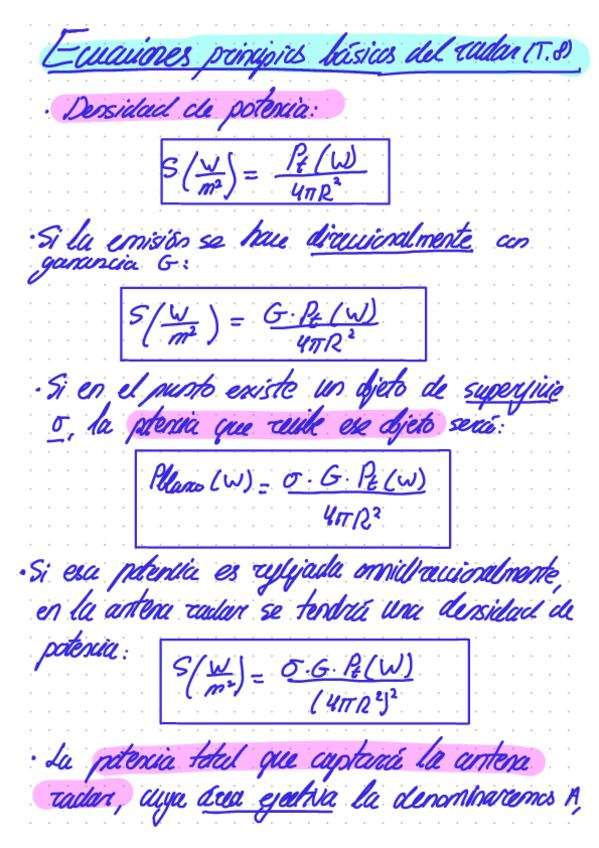 Ecuaciones principios básicos del radar (T.8)
· Densidad de potencia:
S (W/m²) = Pt (W) / 4πR²
· Si la emisión se hace direccionalmente con
ganancia G:
S (W/m²) = G · Pt (W) / 4πR²
· Si en el punto existe un objeto de superficie
σ, la potencia que recibe ese objeto será:
Pblanco (W) = σ · G · Pt (W) / 4πR²
· Si esa potencia es reflejada omnidireccionalmente,
en la antena radar se tendrá una densidad de
potencia:
S (W/m²) = σ · G · Pt (W) / (4πR²)²
· La potencia total que captará la antena
radar, cuya área efectiva la denominaremos A,